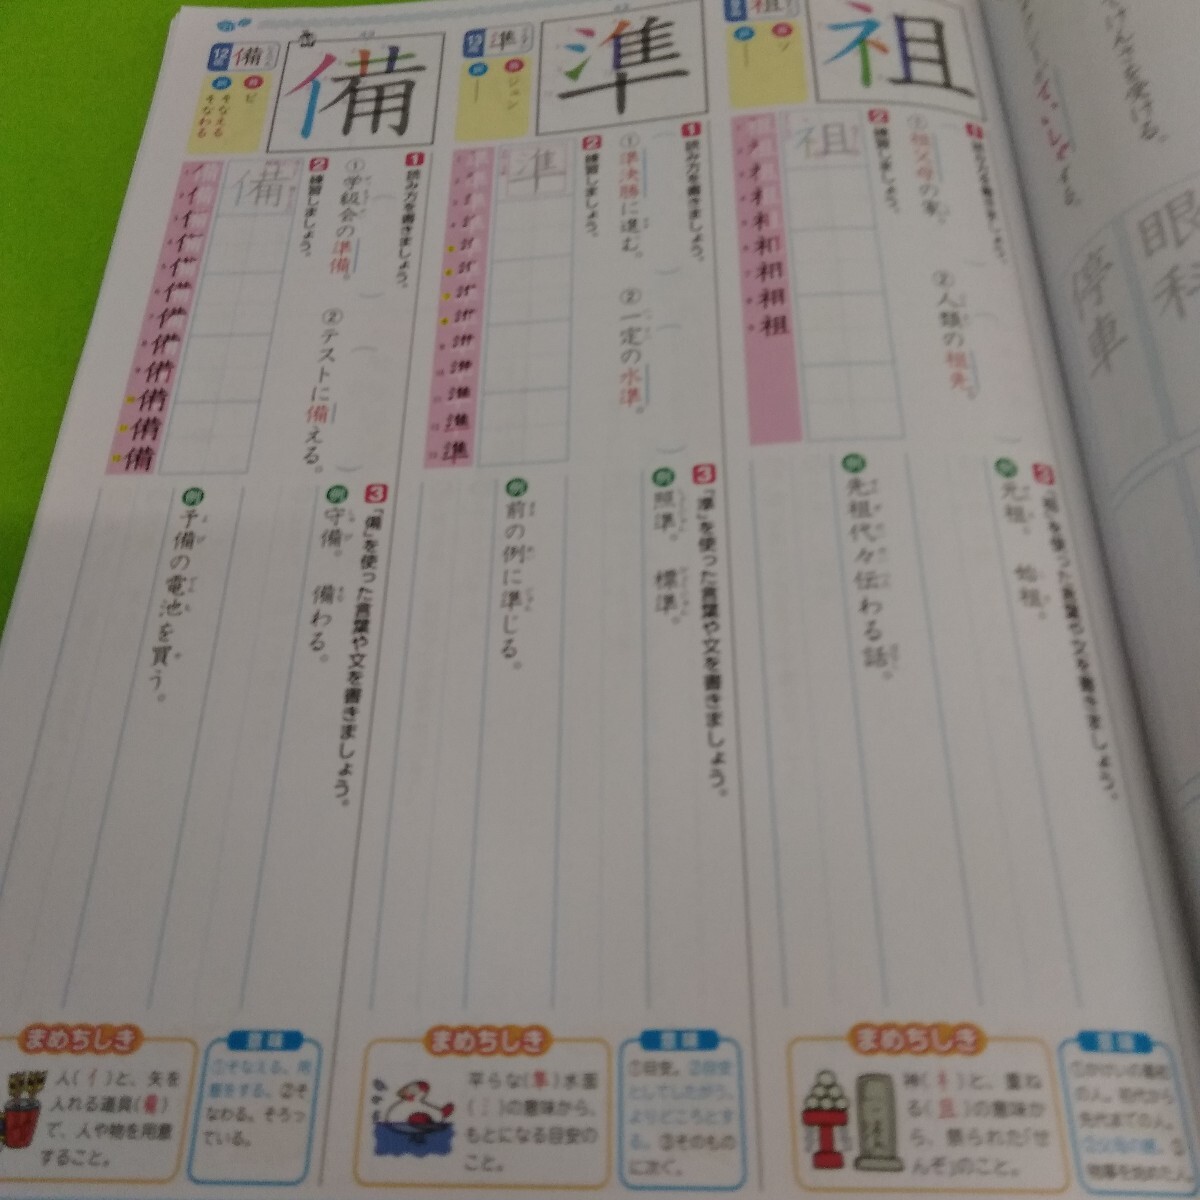 けんさを受ける。
眼科
停車
祖
祖
音 ソ
1 読み方を書きましょう。
① 祖父母の家。
② 人類の祖先。
2 練習しましょう。
祖
3 「祖」を使った言葉や文を書きましょう。
例 元祖。 始祖。
例 先祖代々伝わる話。
意味
まめちしき
神(ネ)と、重ね
る(且)の意味か
ら、祭られた「せ
んぞ」のこと。
準
12画
準
音 ジュン
訓 ―
1 読み方を書きましょう。
① 準決勝に進む。
② 一定の水準。
2 練習しましょう。
準
3 「準」を使った言葉や文を書きましょう。
例 照準。 標準。
例 前の例に準じる。
意味
①目安。②目安
としてしたがう。
よりどころとす
る。③そのもの
に次ぐ。
まめちしき
平らな(隼)水面
(氵)の意味から、
もとになる目安の
こと。
備
12画
備
音 ビ
訓 そなえる
そなわる
1 読み方を書きましょう。
① 学級会の準備。
② テストに備える。
2 練習しましょう。
備
3 「備」を使った言葉や文を書きましょう。
例 守備。 備わる。
例 予備の電池を買う。
意味
①そなえる。用
意をする。②そ
なわる。そろっ
ている。
まめちしき
人(亻)と、矢を
入れる道具
で、人や物を用意
すること。